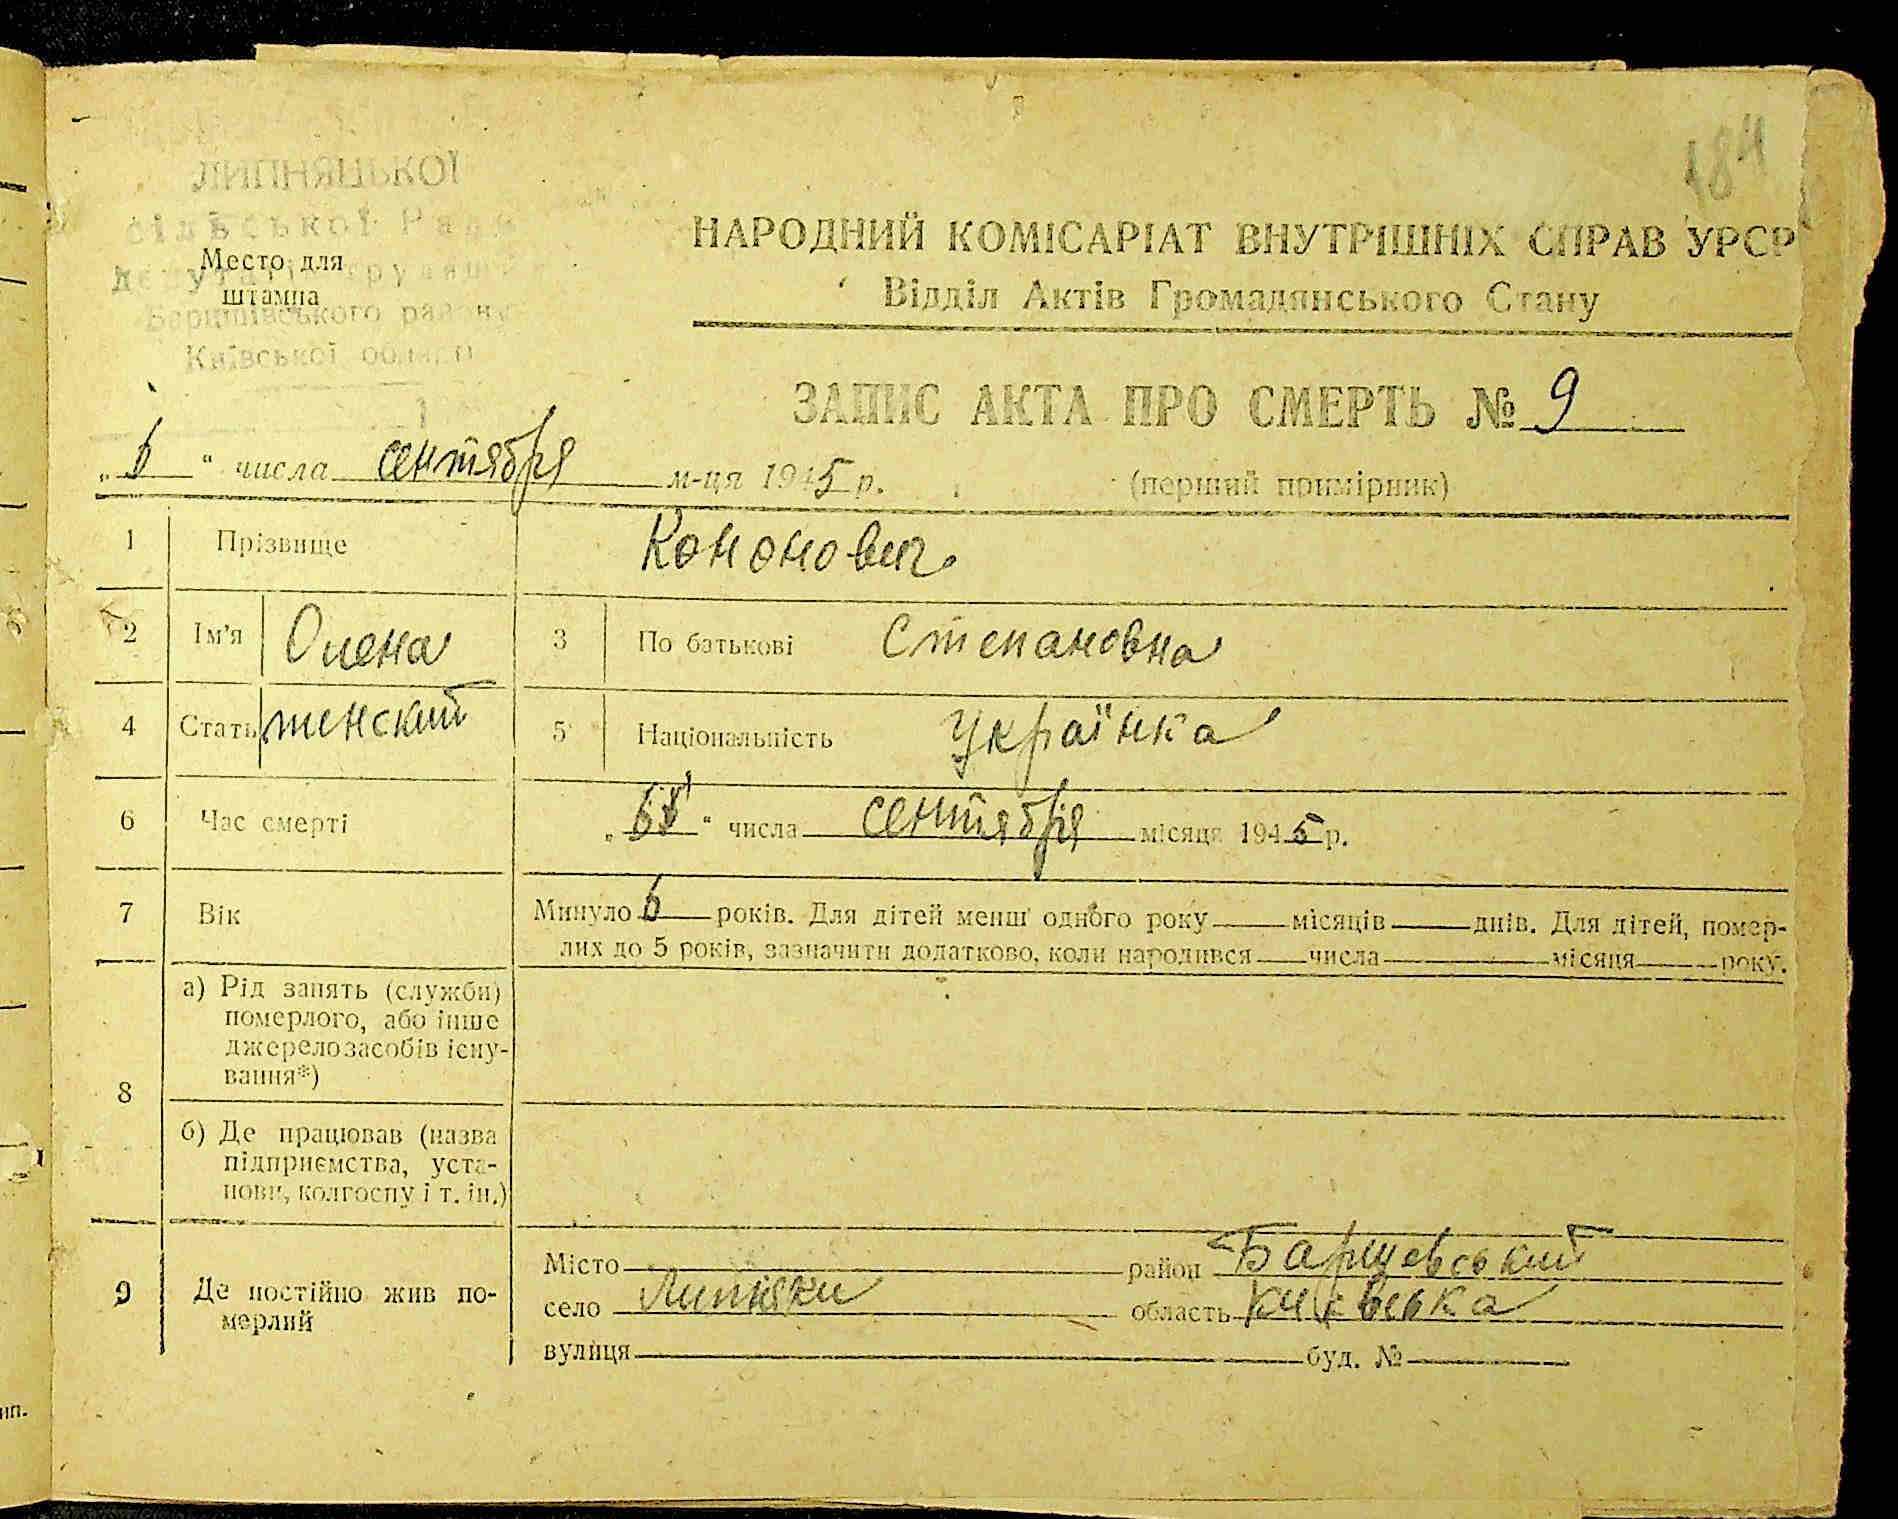 184
ЛИПНЯЦЬКОЇ
сільської Ради
Место для
штампа
депутатів трудящих
Баришівського району
Київської області
НАРОДНИЙ КОМІСАРІАТ ВНУТРІШНІХ СПРАВ УРСР
Відділ Актів Громадянського Стану
ЗАПИС АКТА ПРО СМЕРТЬ № 9
„ 6 “ числа сентября м-ця 1945 р. (перший примірник)
1 Прізвище Кононович
2 Ім'я Олена 3 По батькові Степановна
4 Стать женский 5 Національність Українка
6 Час смерті „ “ числа сентября місяця 1945 р.
7 Вік Минуло 6 років. Для дітей менш одного року місяців днів. Для дітей, помер-
лих до 5 років, зазначити додатково, коли народився числа місяця року.
8 а) Рід занять (служби)
померлого, або інше
джерело засобів існу-
вання*)
б) Де працював (назва
підприємства, уста-
нови, колгоспу і т. ін.)
9 Де постійно жив по-
мерлий
Місто район Баришевський
село Липняки область Київська
вулиця буд. №
ип.